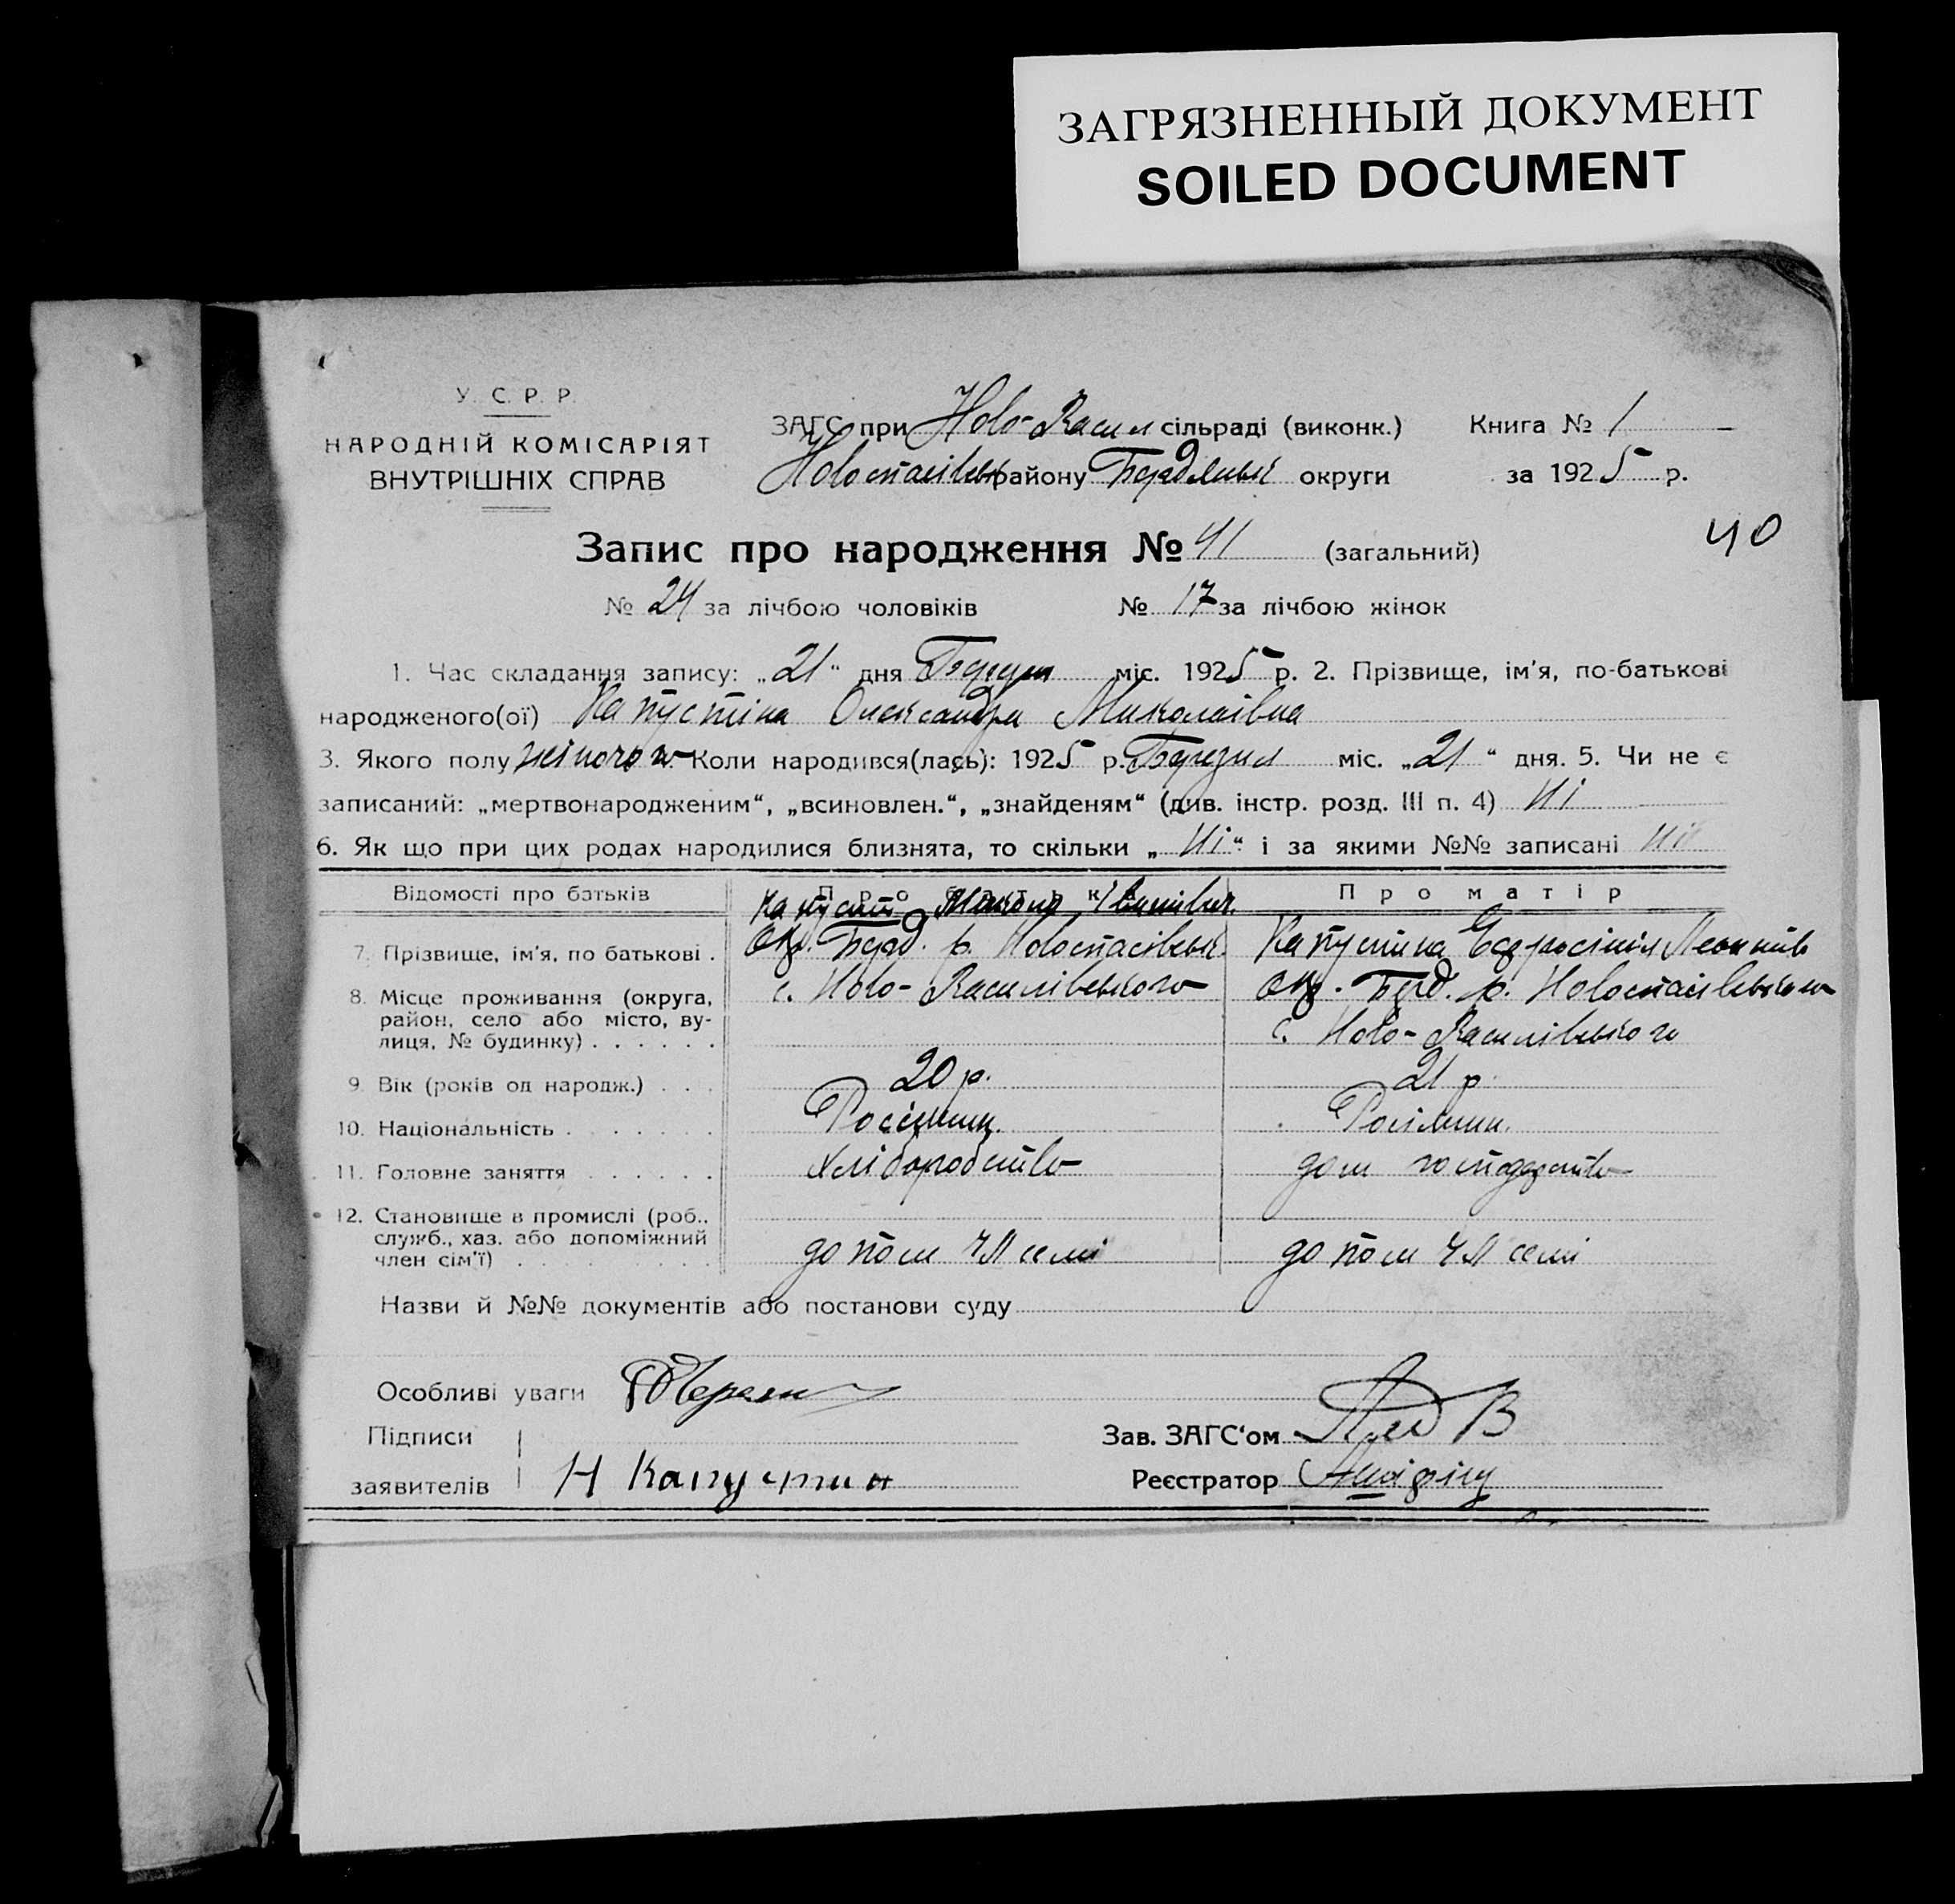 ЗАГРЯЗНЕННЫЙ ДОКУМЕНТ
SOILED DOCUMENT
У. С. Р. Р.
НАРОДНІЙ КОМІСАРІЯТ
ВНУТРІШНІХ СПРАВ
ЗАГС при Ново-Васил сільраді (виконк.) Книга № 1
Новоспасівськ району Бердянськ округи за 1925 р.
40
Запис про народження № 41 (загальний)
№ 24 за лічбою чоловіків № 17 за лічбою жінок
1. Час складання запису: „21“ дня міс. 1925 р. 2. Прізвище, ім'я, по-батькові
народженого(ої) Капустіна Олександра Миколаівна
3. Якого полу жіночого Коли народився(лась): 1925 р. Березня міс. „21“ дня. 5. Чи не є
записаний: „мертвонародженим“, „всиновлен.“, „знайденям“ (див. інстр. розд. III п. 4) Ні
6. Як що при цих родах народилися близнята, то скільки „Ні“ і за якими №№ записані Ні
Відомості про батьків Про батька Про матір
7. Прізвище, ім'я, по батькові . Капустін Микола Капустіна Єфросінія Леонтів
8. Місце проживання (округа, район, село або місто, вулиця, № будинку) . . . . . .
Окр. Берд. р. Новоспасівськ.
с. Ново-Василівського
Окр. Берд. р. Новоспасівського
с. Ново-Василівського
9. Вік (років од народж.) . . . 20 р. 21 р.
10. Національність . . . . . . . Росіянин. Росіянин.
11. Головне заняття . . . . . . хліборобство дом господарство
12. Становище в промислі (роб., служб., хаз. або допоміжний член сім'ї) . . . . . . . . .
допом чл семі допом чл семі
Назви й №№ документів або постанови суду
Особливі уваги
Підписи
заявителів Н Капустин
Зав. ЗАГС'ом
Реєстратор